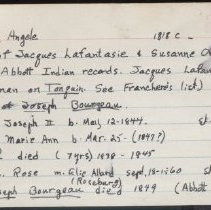 Angele 1818 C -
of Jacques Lafantasie & Susanne O
Abbott Indian records. Jacques Lafan
man on Tonquin. See Francheres list)
of Joseph Bourgeau.
Joseph II b. May 12-1844. st
Marie Ann b. Mar. 25- (1847?)
died (7yrs) 1838 - 1845
Rose m. Elie Allard Sept. 18-1860 st
(Roseburg)
seph Bourgeau died 1849 (Abbott